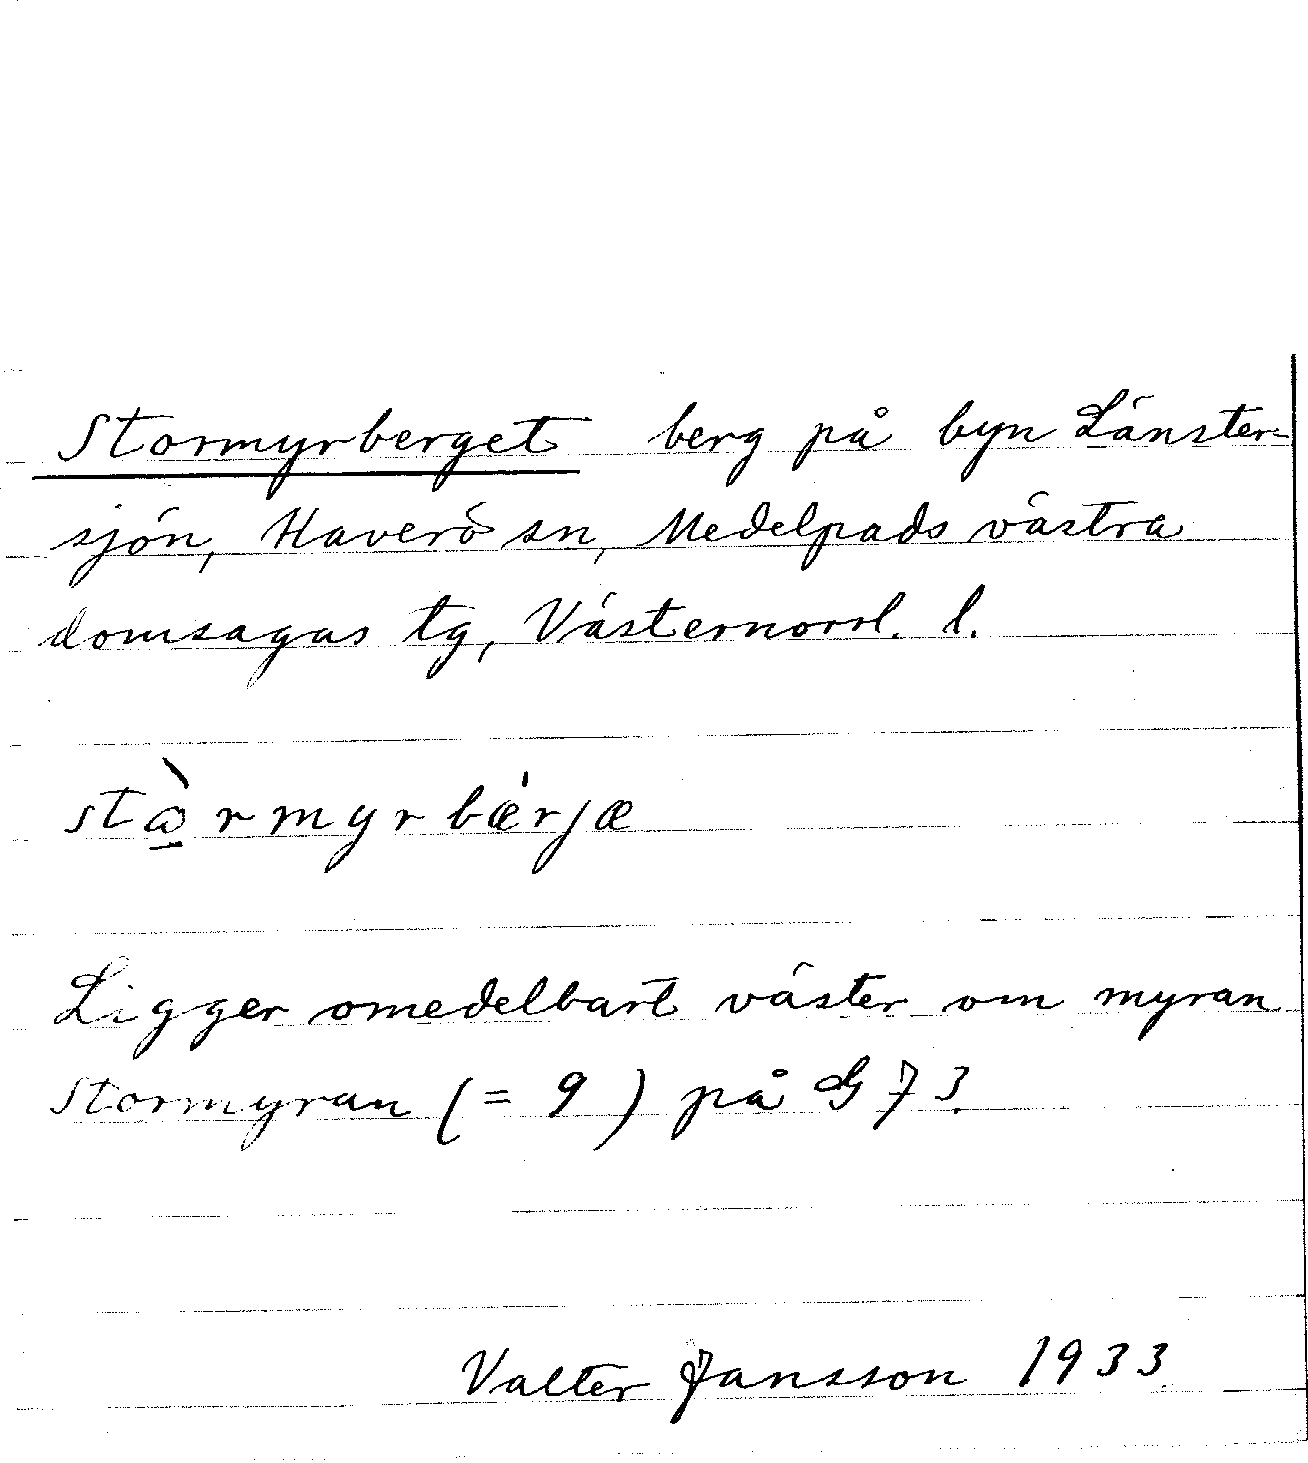 Stormyrberget berg på byn Länster-
sjön, Haverö sn, Medelpads västra
domsagas tg, Västernorrl. l.
stò̱rmyrbǽrjæ
Ligger omedelbart väster om myran
Stormyran (= 9) på G 73.
Valter Jansson 1933